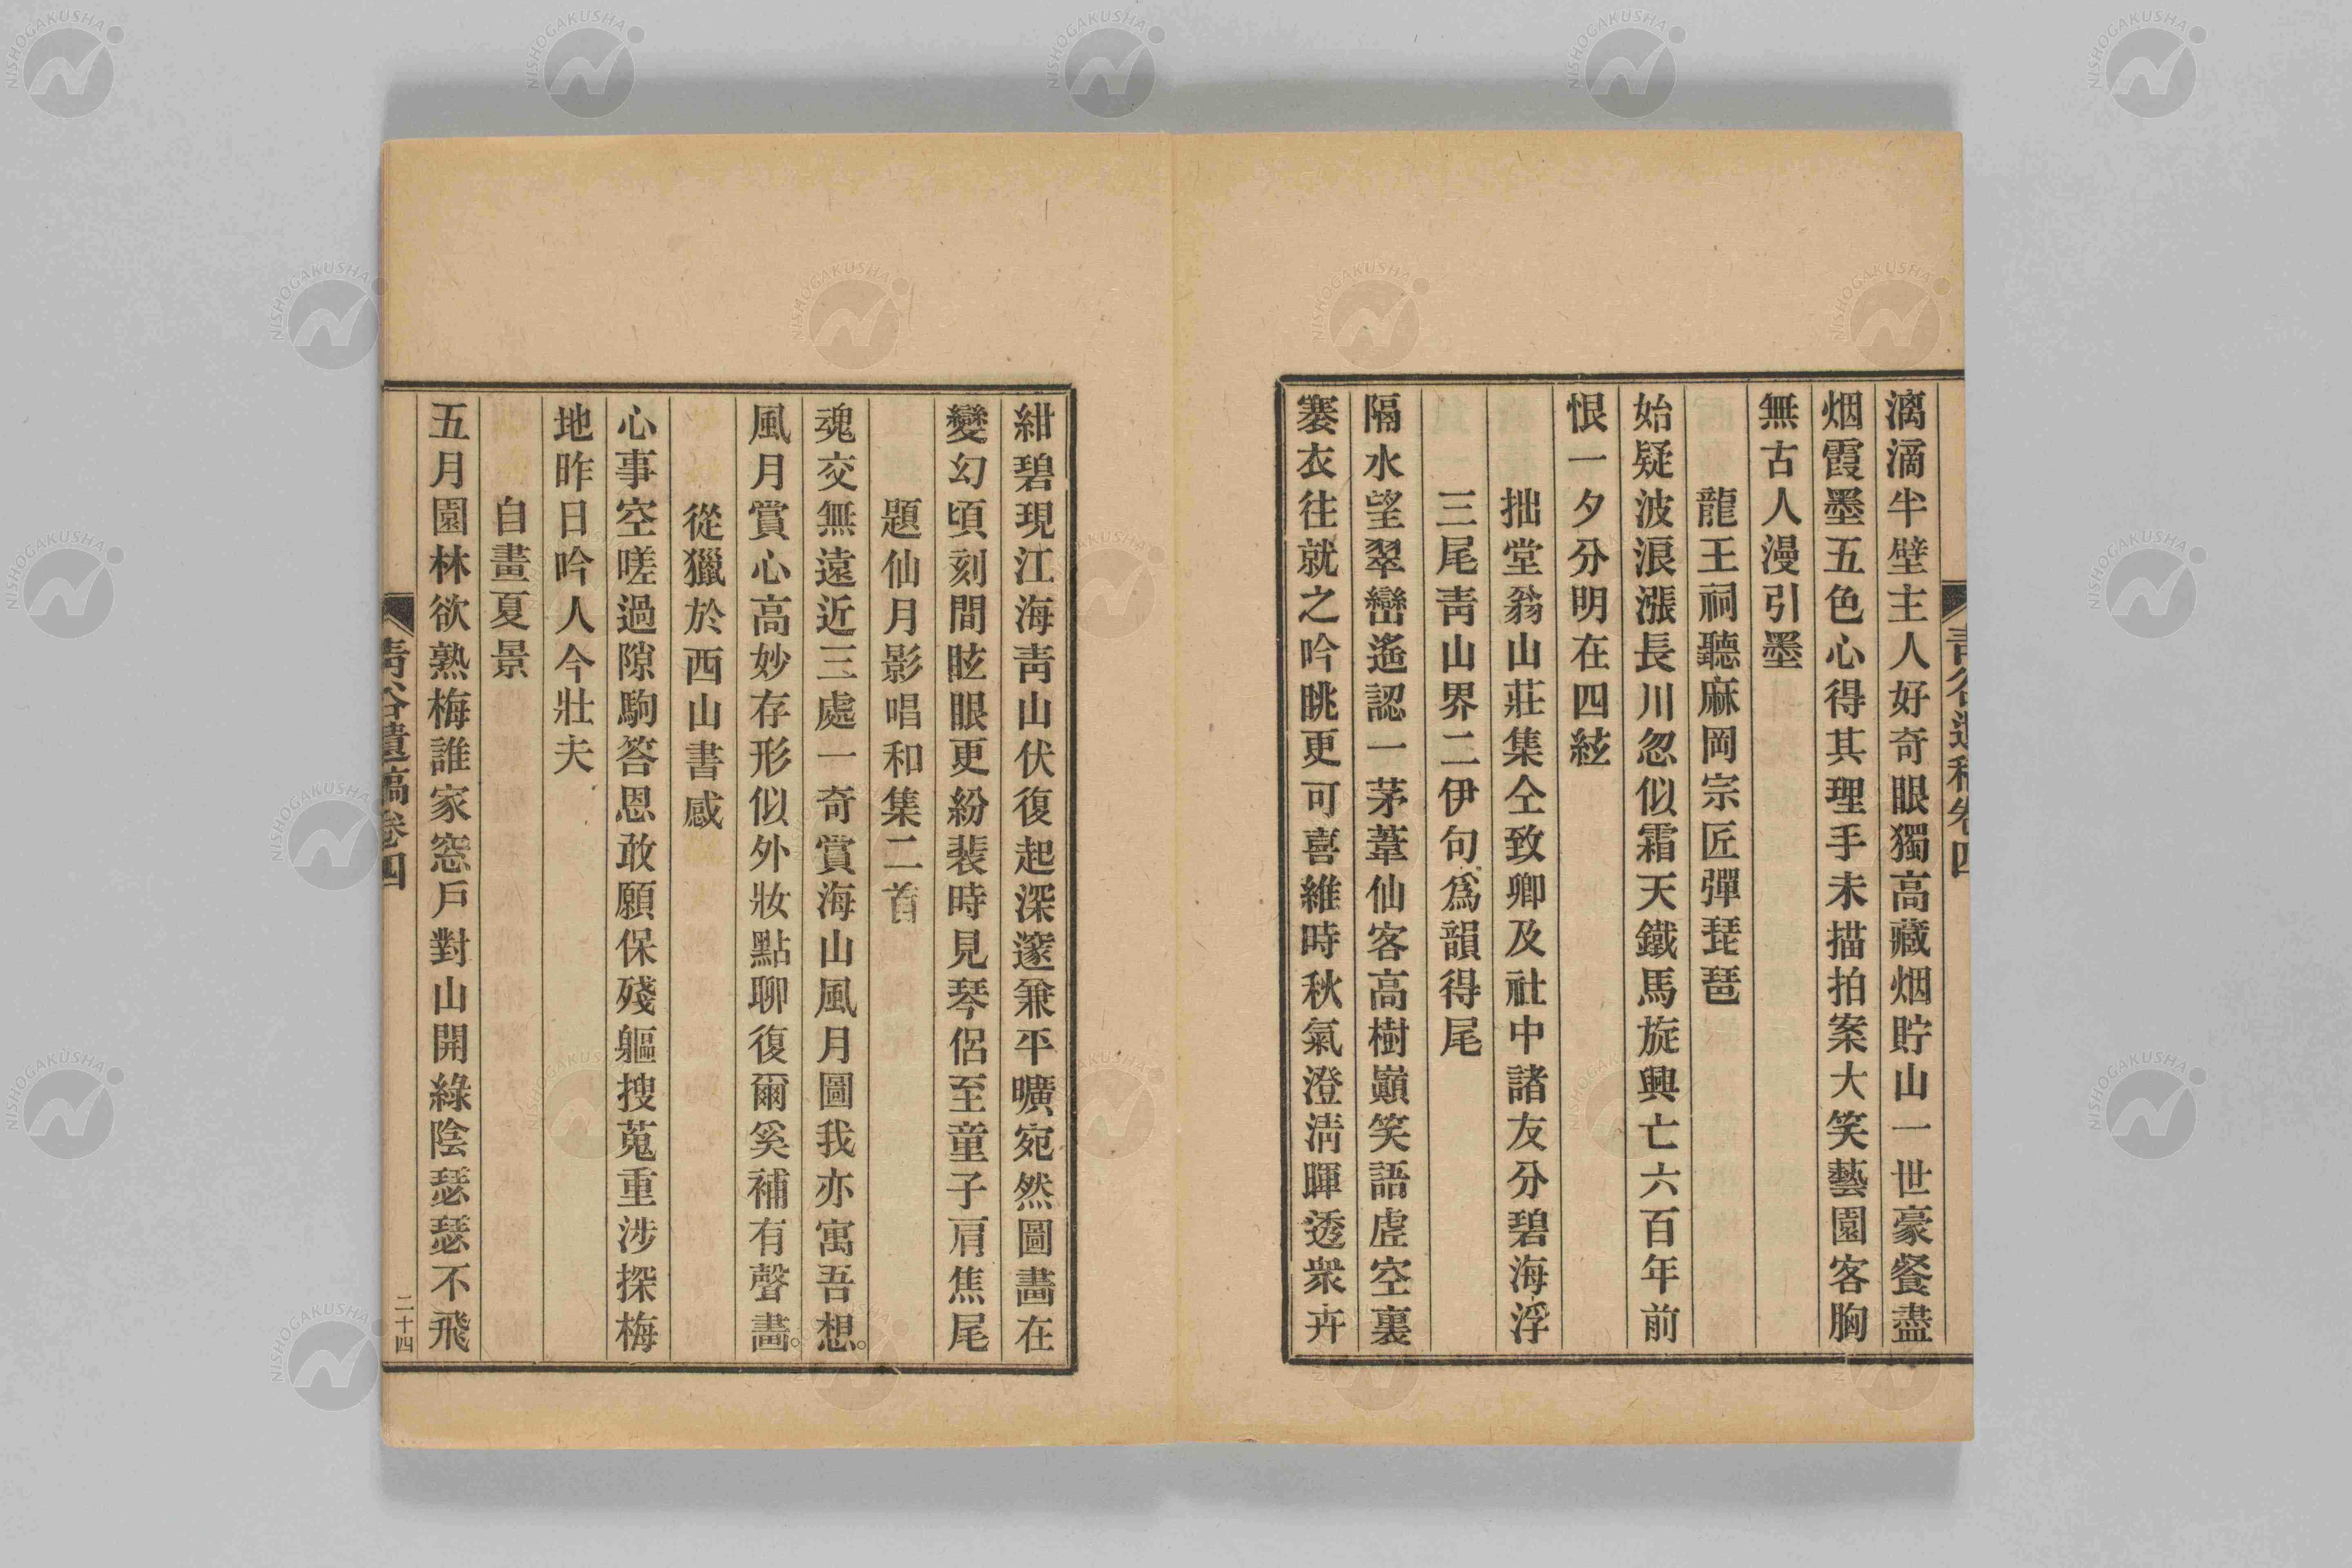 漓滴半壁主人好奇眼獨高藏烟貯山一世豪餐盡
烟霞墨五色心得其理手未描拍案大笑藝園客胸
無古人漫引墨
龍王祠聽麻岡宗匠彈琵琶
始疑波浪漲長川忽似霜天鐵馬旋興亡六百年前
恨一夕分明在四絃
拙堂翁山莊集仝致卿及社中諸友分碧海浮
三尾靑山界二伊句爲韻得尾
隔水望翠巒遙認一茅葦仙客高樹巓笑語虛空裏
褰衣往就之吟眺更可喜維時秋氣澄淸暉透衆卉
紺碧現江海靑山伏復起深邃兼平曠宛然圖畵在
變幻頃刻間眩眼更紛裴時見琴侶至童子肩焦尾
題仙月影唱和集二首
魂交無遠近三處一奇賞海山風月圖我亦寓吾想。
風月賞心高妙存形似外妝點聊復爾奚補有聲畵。
從獵於西山書感
心事空嗟過隙駒答恩敢願保殘軀搜蒐重涉探梅
地昨日吟人今壯夫
自畫夏景
五月園林欲熟梅誰家窓戶對山開綠陰瑟瑟不飛
靑谷遺稿卷四
二十四
靑谷遺稿卷四
NISHOGAKUSHA